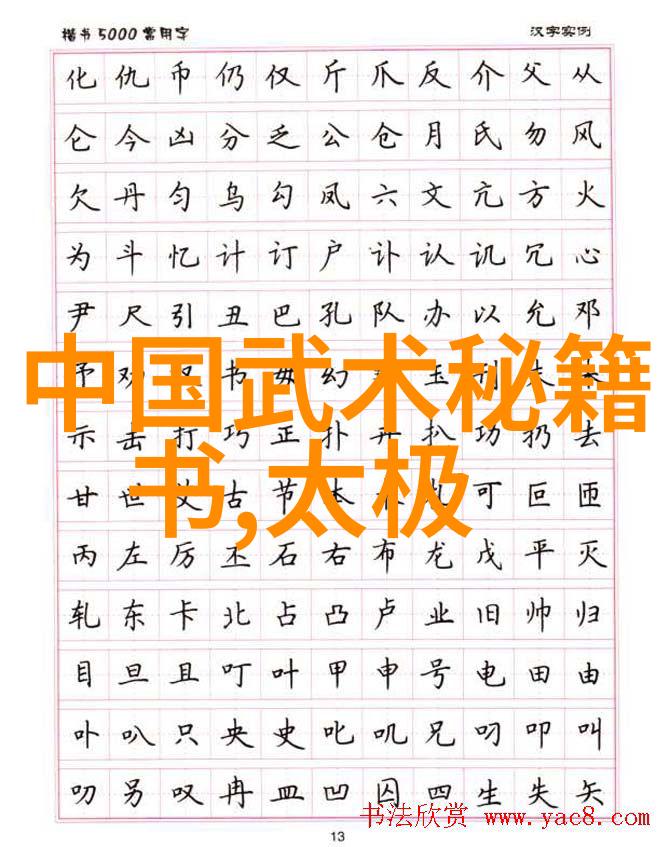 楷书5000常用字 汉字实例
化仇币仍仅斤爪反介父从
仑今凶分乏公仓月氏勿风
欠丹匀乌勾凤六文亢方火
为斗忆计订户讣认讥冗心
尹尺引丑巴孔队办以允邓
中国武术秘籍
予劝书幻玉刊
示击打巧正扑开扒功扔去
书,太极
甘世艾古节可叵匝
丙左厉丕石右布龙戊平灭
轧东卡北占凸卢业旧帅归
目旦且叮叶甲申号电田由
卟叭只央史叱叽兄叼叩叫
叨另叹冉皿凹囚四生失矢
书法欣赏 www.yac8.com
13